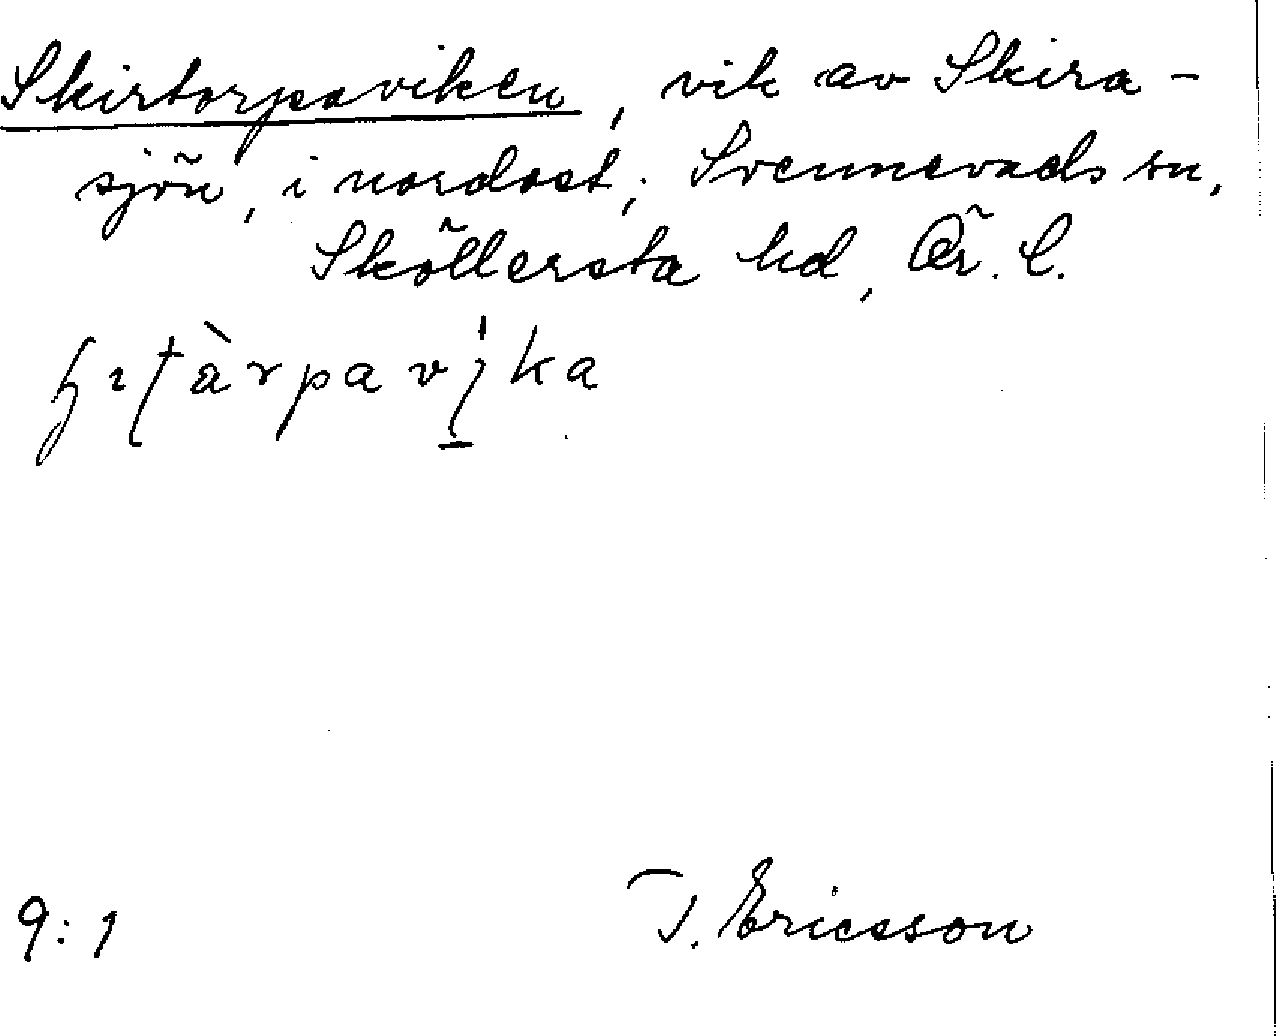 Skirtorpaviken, vik av Skira-
sjön, i nordost; Svennevads sn,
Sköllersta hd, Ör. l.
9:1
T. Ericsson